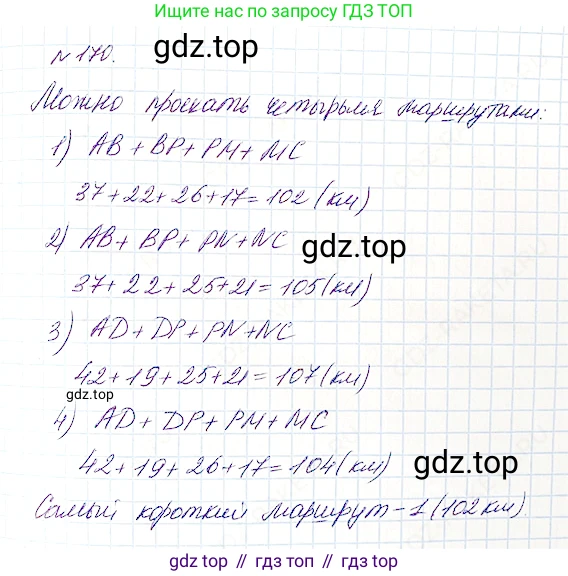 Ищите нас по запросу ГДЗ ТОП
№ 170.
gdz.top
Можно проехать четырьмя маршрутами:
1) AB + BP + PM + MC
37+22+26+17=102 (км)
2) AB + BP + PN + NC
gdz.top
37+22+25+21=105 (км)
3) AD + DP + PN + NC
42+19+25+21=107 (км)
gdz.top
4) AD + DP + PM + MC
42+19+26+17=104 (км)
gdz.top
Самый короткий маршрут - 1 (102 км)
gdz top // гдз топ // гдз top